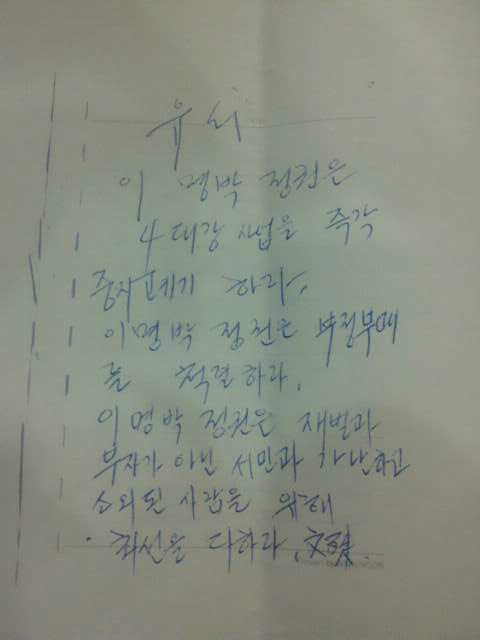 유서
이 명박 정권은
4대강 사업을 즉각
중지 폐기 하라,
이명박 정권은 부정부패
를 척결하라,
이명박 정권은 재벌과
부자가 아닌 서민과 가난하고
소외된 사람을 위해
최선을 다하라, 文